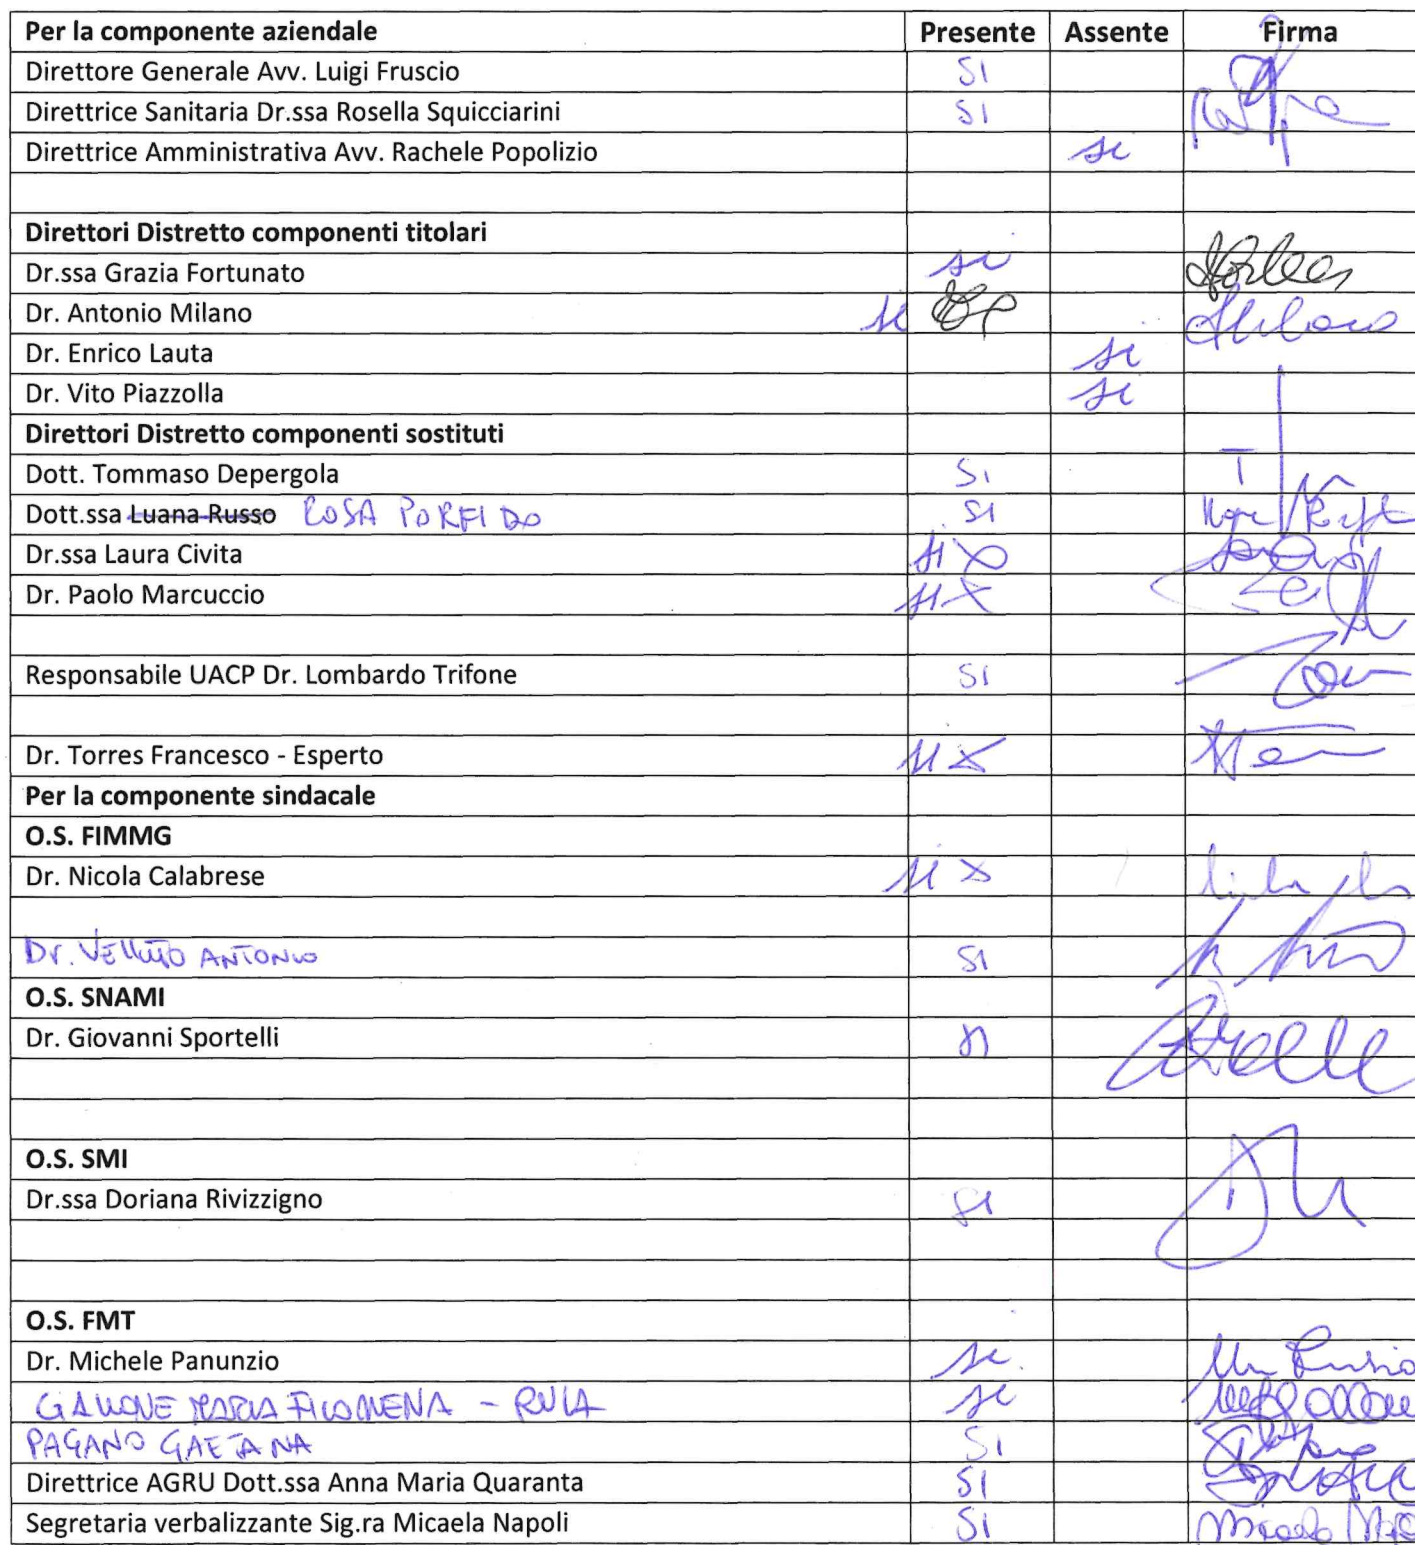 Per la componente aziendale Presente Assente Firma
Direttore Generale Avv. Luigi Fruscio SI
Direttrice Sanitaria Dr.ssa Rosella Squicciarini SI
Direttrice Amministrativa Avv. Rachele Popolizio si
Direttori Distretto componenti titolari
Dr.ssa Grazia Fortunato si
Dr. Antonio Milano si
Dr. Enrico Lauta si
Dr. Vito Piazzolla si
Direttori Distretto componenti sostituti
Dott. Tommaso Depergola Si
Dott.ssa Luana Russo ROSA PORFIDO SI
Dr.ssa Laura Civita SI X
Dr. Paolo Marcuccio SI X
Responsabile UACP Dr. Lombardo Trifone SI
Dr. Torres Francesco - Esperto SI X
Per la componente sindacale
O.S. FIMMG
Dr. Nicola Calabrese SI X
Dr. VELLUTO ANTONIO SI
O.S. SNAMI
Dr. Giovanni Sportelli SI
O.S. SMI
Dr.ssa Doriana Rivizzigno SI
O.S. FMT
Dr. Michele Panunzio si
GALLONE MARIA FILOMENA - si
PAGANO GAETANA SI
Direttrice AGRU Dott.ssa Anna Maria Quaranta SI
Segretaria verbalizzante Sig.ra Micaela Napoli SI Micaela